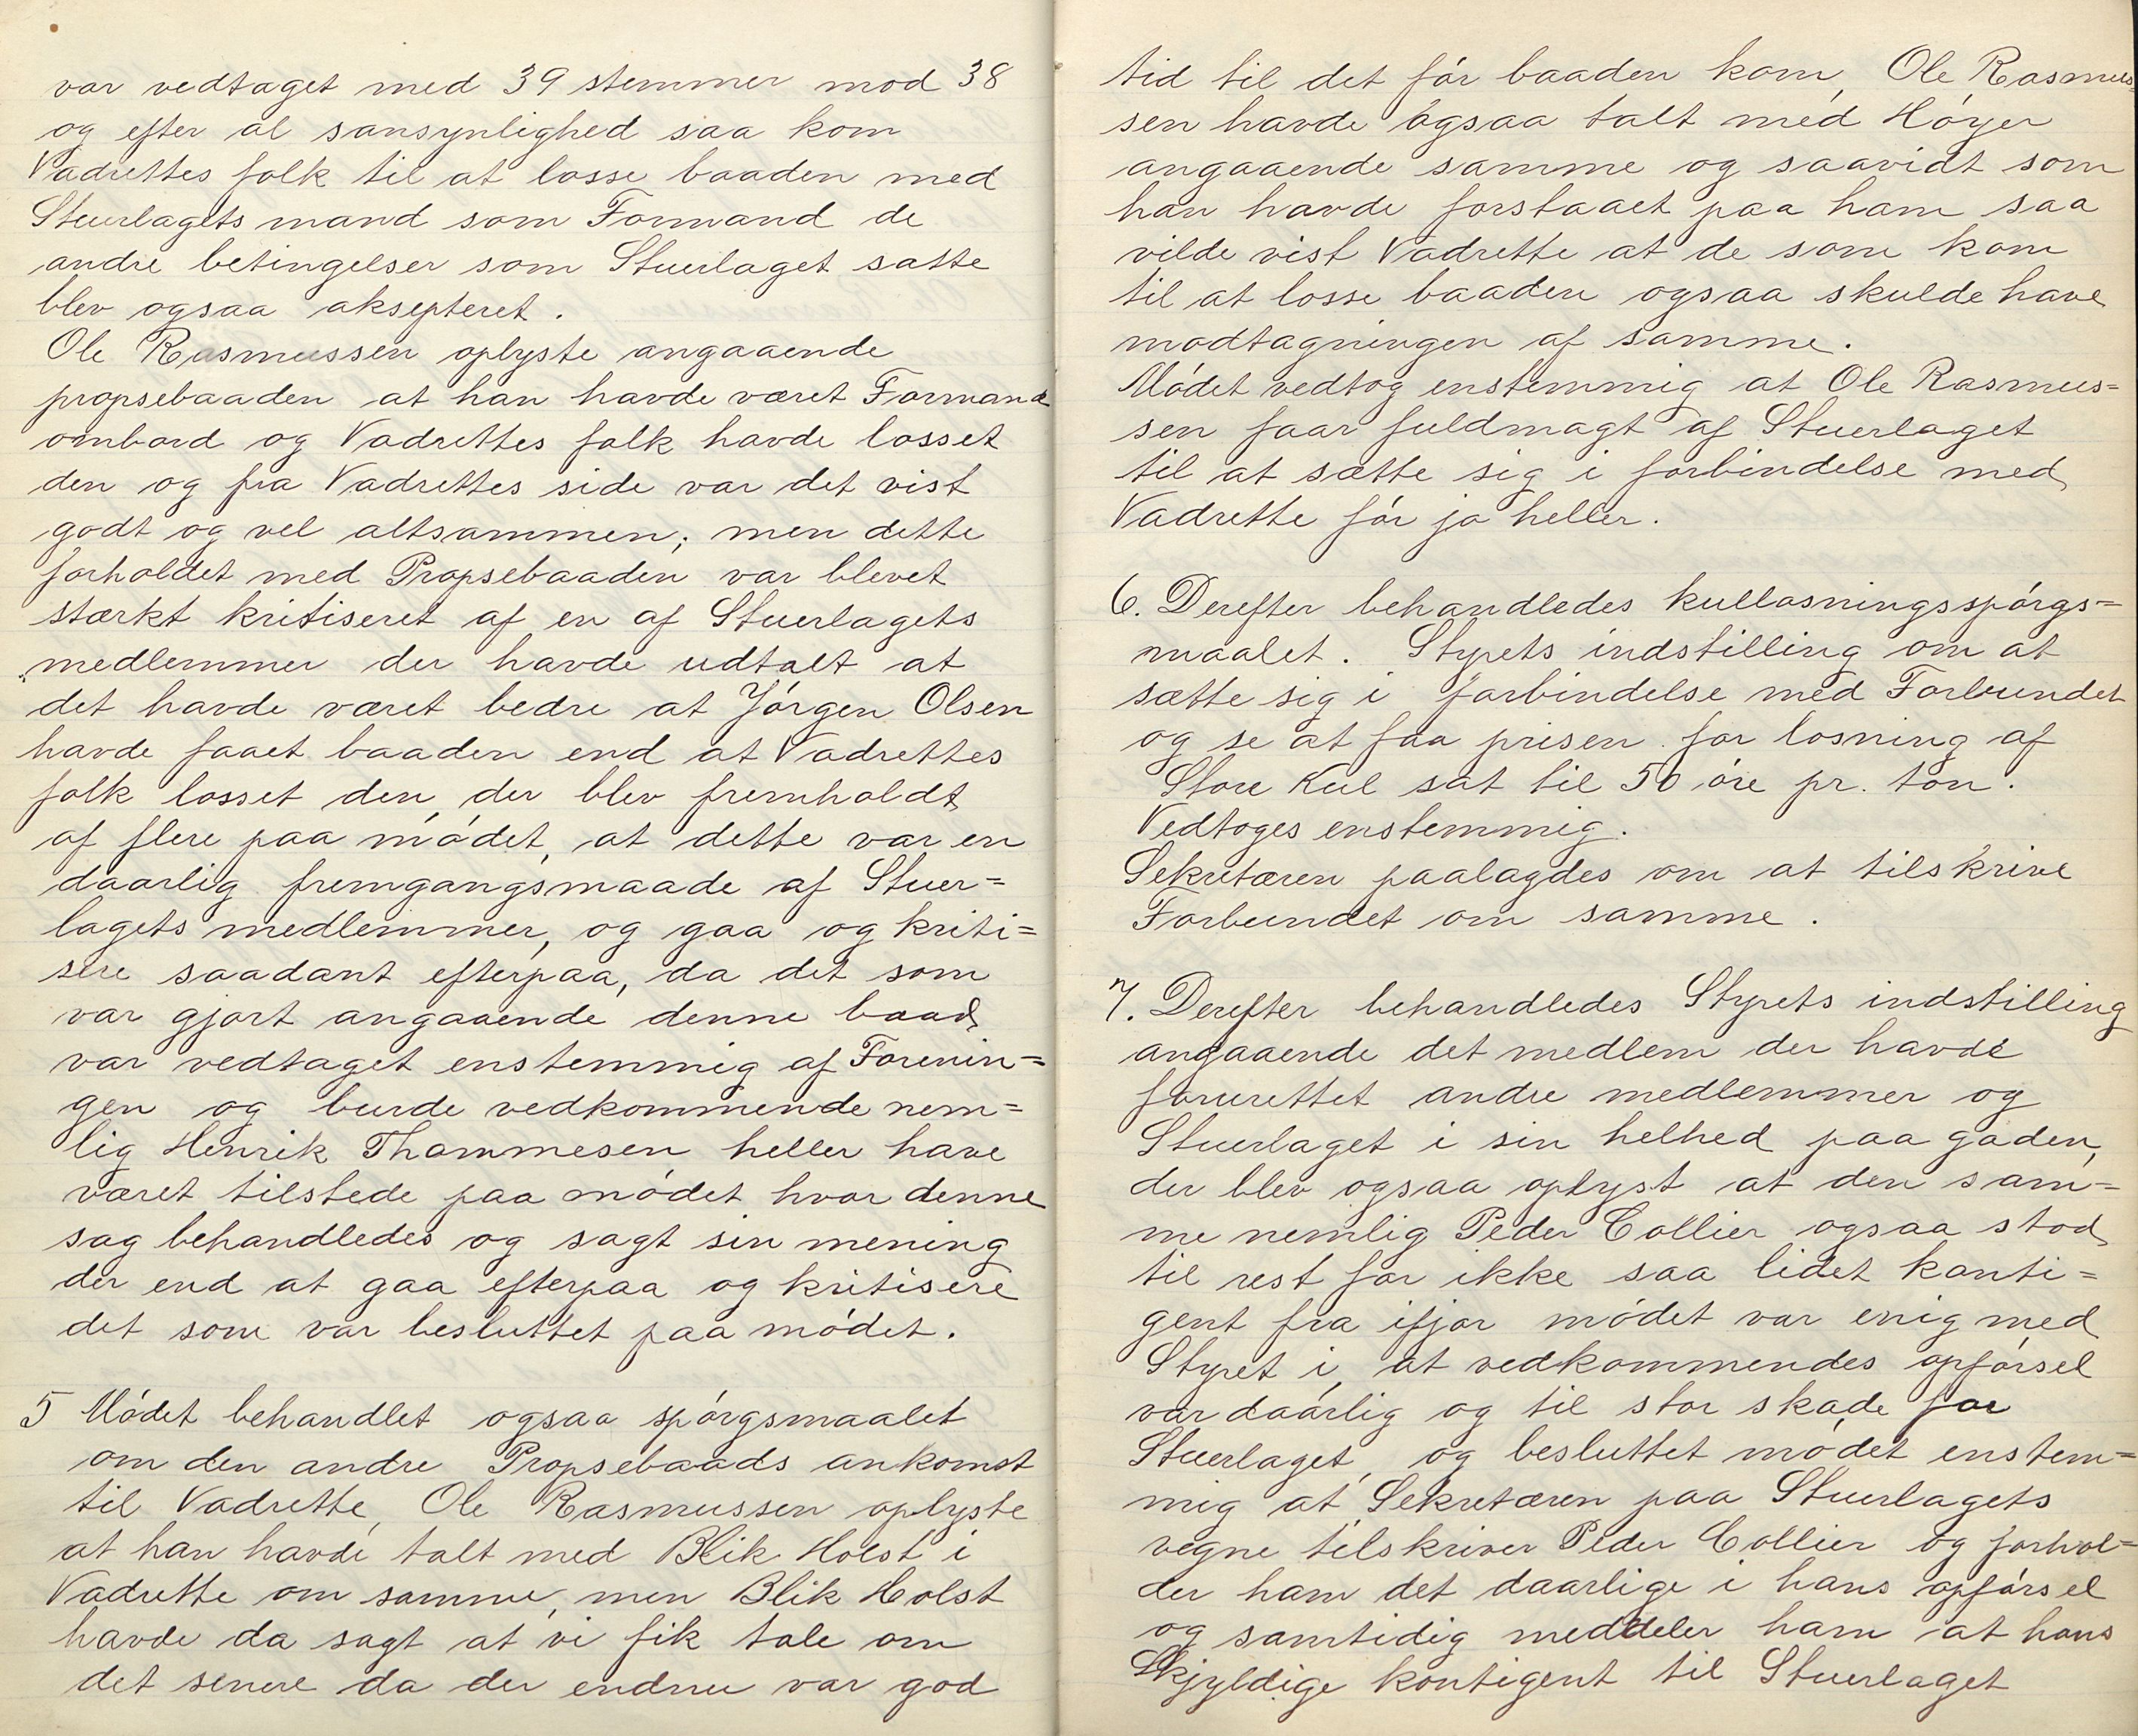 var vedtaget med 39 stemmer mod 38
og efter al sansynlighed saa kom
Vadrettes folk til at losse baaden med
Stuerlagets mand som Formand de
andre betingelser som Stuerlaget satte
blev ogsaa aksepteret.
Ole Rasmussen oplyste angaaende
propsebaaden at han havde været Formand
ombord og Vadrettes folk havde losset
den og fra Vadrettes side var det vist
godt og vel altsammen; men dette
forholdet med Propsebaaden var blevet
stærkt kritiseret af en af Stuerlagets
medlemmer der havde udtalt at
det havde været bedre at Jörgen Olsen
havde faaet baaden end at Vadrettes
folk losset den, der blev fremholdt
af flere paa mödet, at dette var en
daarlig fremgangsmaade af Stuer=
lagets medlemmer, og gaa og kriti=
sere saadant efterpaa, da det som
var gjort angaaende denne baad
var vedtaget enstemmig af Forenin=
gen og burde vedkommende nem=
lig Henrik Thommesen heller have
været tilstede paa mödet hvor denne
sag behandledes og sagt sin mening
der end at gaa efterpaa og kritisere
det som var besluttet paa mödet.
5 Mödet behandlet ogsaa spörgsmaalet
om den andre Propsebaads ankomst
til Vadrette, Ole Rasmussen oplyste
at han havde talt med Blik Holst i
Vadrette om samme, men Blik Holst
havde da sagt at vi fik tale om
det senere da der endnu var god
tid til det för baaden kom, Ole Rasmus=
sen havde ogsaa talt med Höyer
angaaende samme og saavidt som
han havde forstaaet paa ham saa
vilde vist Vadrette at de som kom
til at losse baaden ogsaa skulde have
modtagningen af samme.
Mödet vedtog enstemmig at Ole Rasmus=
sen faar fuldmagt af Stuerlaget
til at sætte sig i forbindelse med
Vadrette för jo heller.
6. Derefter behandledes kullosningsspörgs=
maalet. Styrets indstilling om at
sætte sig i forbindelse med Forbundet
og se at faa prisen for losning af
Store Kul sat til 50 öre pr. ton.
Vedtoges enstemmig.
Sekretæren paalagdes om at tilskrive
Forbundet om samme.
7. Derefter behandledes Styrets indstilling
angaaende det medlem der havde
forurettet andre medlemmer og
Stuerlaget i sin helhed paa gaden,
der blev ogsaa oplyst at den sam=
me nemlig Peder Collier ogsaa stod
til rest for ikke saa lidet konti=
gent fra ifjor mödet var enig med
Styret i, at vedkommendes opförsel
var daarlig og til stor skade for
Stuerlaget, og besluttet mödet enstem=
mig at Sekretæren paa Stuerlagets
vegne tilskriver Peder Collier og forhol=
der ham det daarlige i hans opförsel
og samtidig meddeler ham at hans
Skjyldige kontigent til Stuerlaget